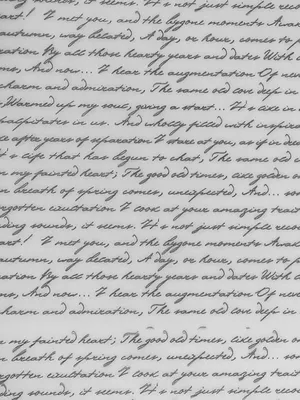 ding sounds, it seems. It's not just simple reco
art! I met you, and the bygone moments Awa
autumn, way belated, A day, or hour, comes to p
ration By all those hearty years and dates With a
ms, And now... I hear the augmentation Of new
charm and admiration, The same old love deep in
Warmed up my soul, giving a start... It's like in
palpitates in us. And wholly filled with inspira
e after years of separation I stare at you, as if in drea
It's a life that has begun to chat, The same old
n my fainted heart; The good old times, like golden
n breath of spring comes, unexpected, And... som
rgotten exultation I look at your amazing trait
ding sounds, it seems. It's not just simple reco
art! I met you, and the bygone moments Awa
autumn, way belated, A day, or hour, comes to p
ration By all those hearty years and dates With a
ms, And now... I hear the augmentation Of new
charm and admiration, The same old love deep in
n my fainted heart; The good old times, like golden
n breath of spring comes, unexpected, And... som
rgotten exultation I look at your amazing trait
ding sounds, it seems. It's not just simple reco